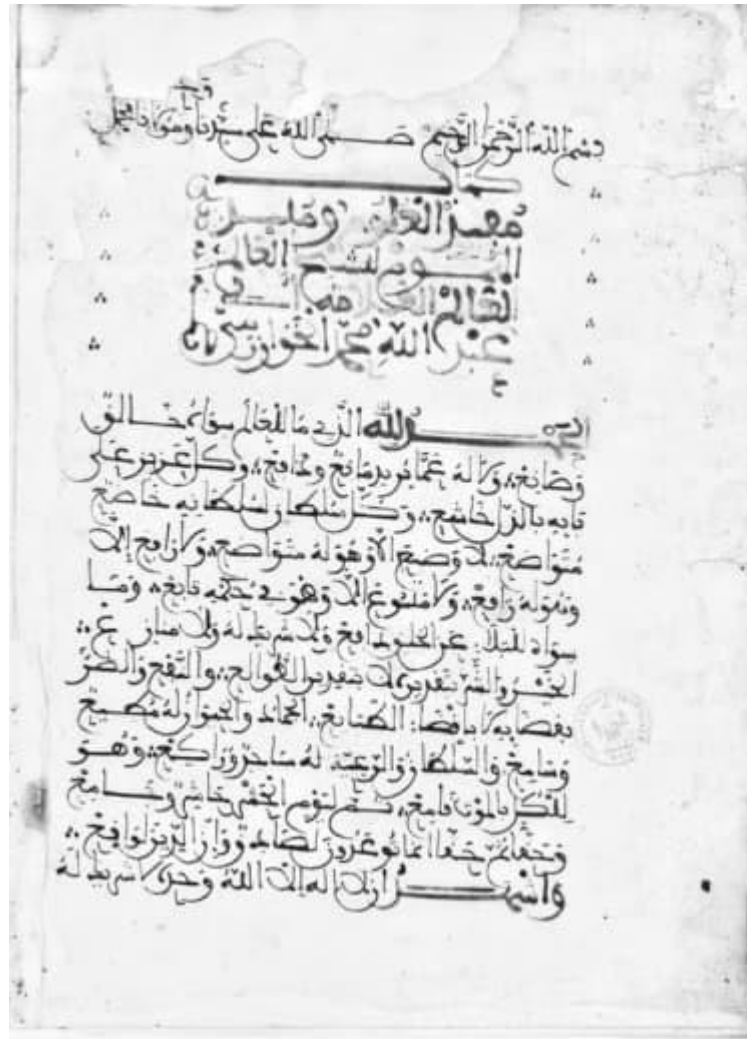 بسم الله الرحمن الرحيم صلى الله على سيدنا ومولانا محمد
كتاب
مفيد العلوم ومبيد
الهموم للشيخ العالم
العالم العلامة أبي
عبد الله محمد الخوارزمي
الحمد لله الذي ما للعالم سواه خالق
وصانع، ولا له عما يريد مانع ودافع، وكل عزيز على
بابه بالذل خاشع، وكل سلطان لسلطانه خاضع
متواضع، لا وضع إلا وهو له متواضع، ولا رافع إلا
وهو له رافع، ولا متبوع إلا وهو في حكمه تابع، وما
سواه للبلاء عن الخلق دافع ولا شريك له ولا منازع
الخير والشر بتقديره لا بتقدير الطوالع، والنفع والضر
بقضائه لا باقتضاء الطبائع، الجماد والحيوان له مطيع
وسامع والسلطان والرعية له ساجد وراكع، وهو
للكل بالموت قامع، ثم ليوم الحشر حاشر وجامع
حقا إنما توعدون لصادق وإن الدين لواقع
وأشهد أن لا إله إلا الله وحده لا شريك له